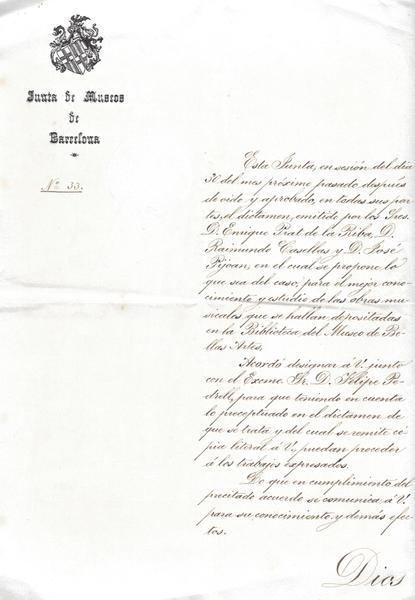 Junta de Museos
de
Barcelona
Nº 33.
Esta Junta, en sesión del dia
30 del mes próximo pasado, después
de oido y aprobado, en todas sus par-
tes, el dictamen, emitido por los Sres.
D. Enrique Prat de la Riba, D.
Raimundo Casellas y D. José
Pijoan, en el cual se propone, lo
que sea del caso, para el mejor cono-
cimiento y estudio de las obras mu-
sicales que se hallan depositadas
en la Biblioteca del Museo de Be-
llas Artes.
Acordó designar á V. junto
con el Excmo. Sr. D. Felipe Pe-
drell, para que teniendo en cuenta
lo preceptuado en el dictamen de
que se trata y del cual se remite có-
pia literal á V., puedan proceder
á los trabajos expresados.
Lo que en cumplimiento del
precitado acuerdo se comunica á V.
para su conocimiento y demás efec-
tos.
Dios